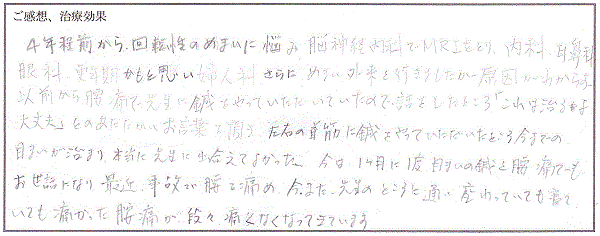 ご感想、治療効果
4年程前から、回転性のめまいに悩み 脳神経内科でMRIをとり、内科、耳鼻科
眼科、更年期かもと思い婦人科 さらに めまい外来と行きましたが原因がわからず
以前から腰痛で先生に鍼をやっていただいていたので話をしたところ「これは治るよ
大丈夫」とのあたたかいお言葉を頂き、左右の首筋に鍼をやっていただいたところ今までの
目まいが治まり、本当に先生に出会えてよかった。今は1ヶ月に1度目まいの鍼と腰痛でも
お世話になり 最近、事故で腰を痛め、今また、先生のところへ通い 座わっていても寝て
いても痛かった腰痛が段々痛くなくなってきています